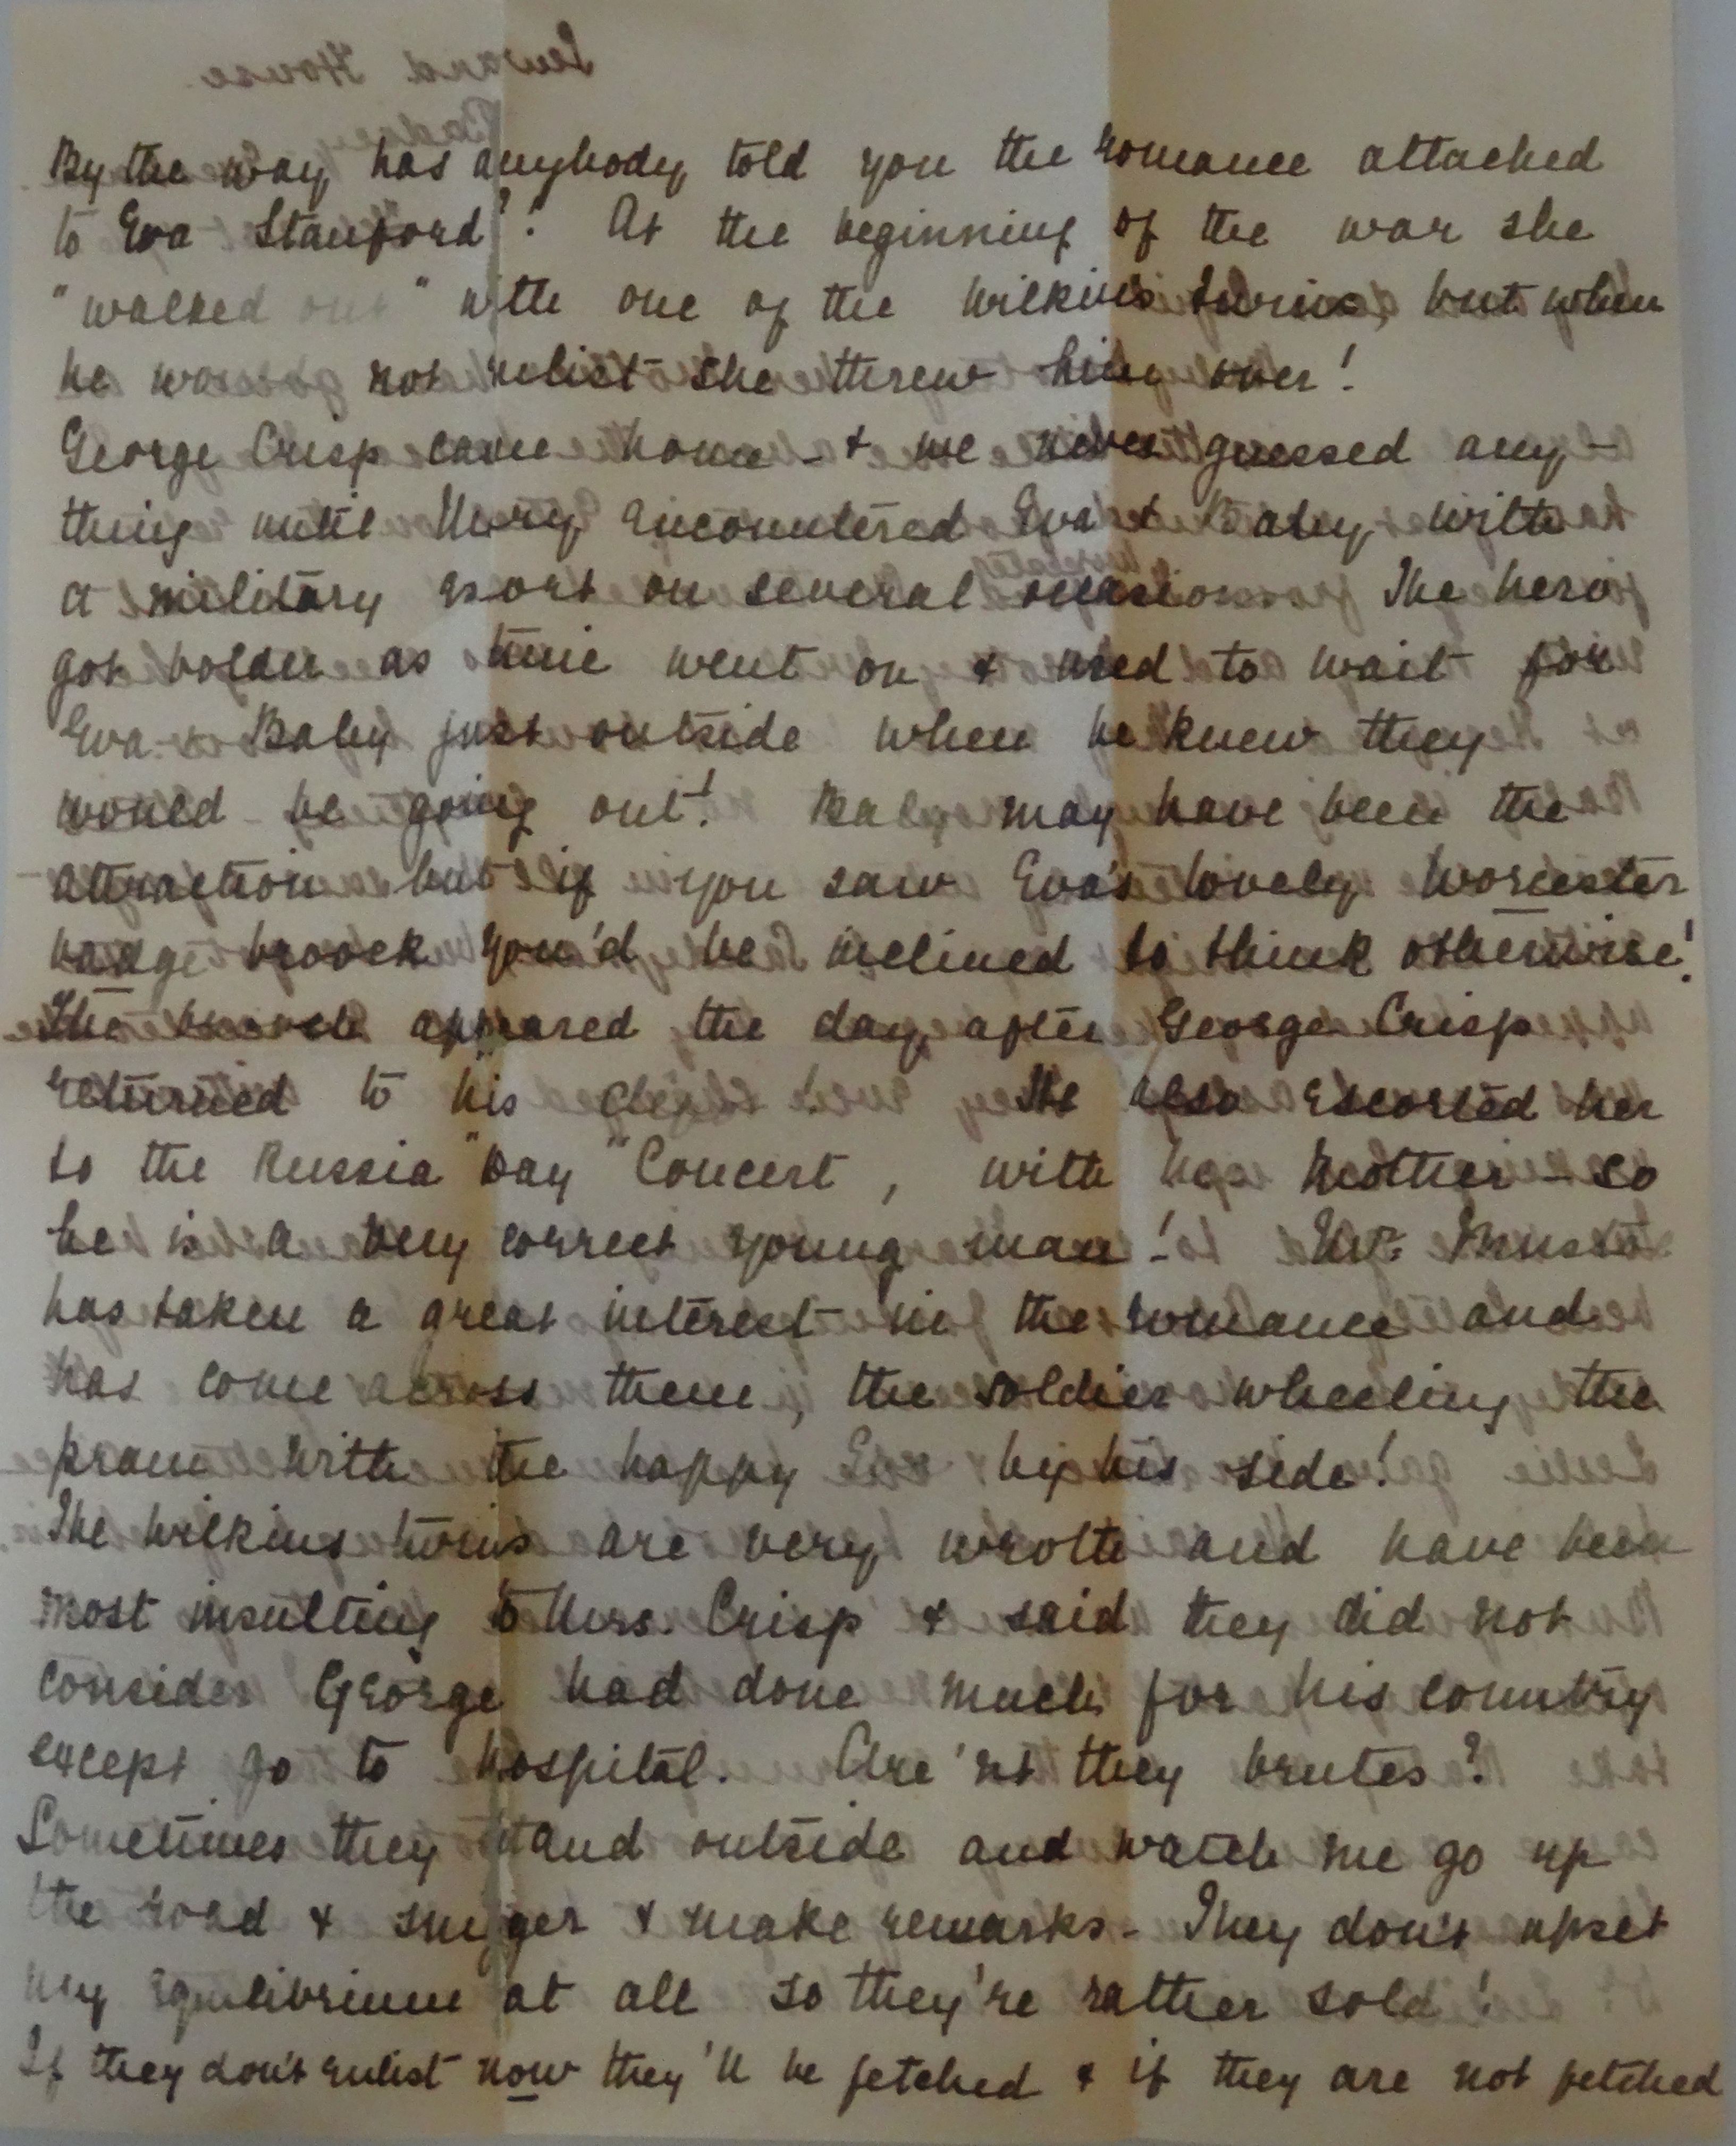 By the way has anybody told you the romance attached
to Eva Stanford? At the beginning of the war she
"walked out" with one of the Wilkins twins, but when
he would not enlist she threw him over!
George Crisp came home - & we never guessed any-
thing until Mary encountered Eva & Baby with
a military escort on several occasions. The hero
got bolder as time went on & used to wait for
Eva & Baby just outside when he knew they
would be going out! Baby may have been the
attraction but if you saw Eva's lovely Worcester
badge brooch you'd be inclined to think otherwise!
The brooch appeared the day after George Crisp
returned to his. He also escorted her
to the Russia "Day" Concert, with his Mother - so
he is a very correct young man! Mr.
has taken a great interest in the romance and
has come across them, the soldier wheeling the
pram with the happy Eva by his side!
The Wilkins twins are very wroth and have been
most insulting to Mrs. Crisp & said they did not
consider George had done much for his country
except go to hospital. Are'nt they brutes?
Sometimes they stand outside and watch me go up
the road & snigger & make remarks - They don't upset
my equilibrium at all so they're rather sold!
If they don't enlist now they'll be fetched & if they are not fetched